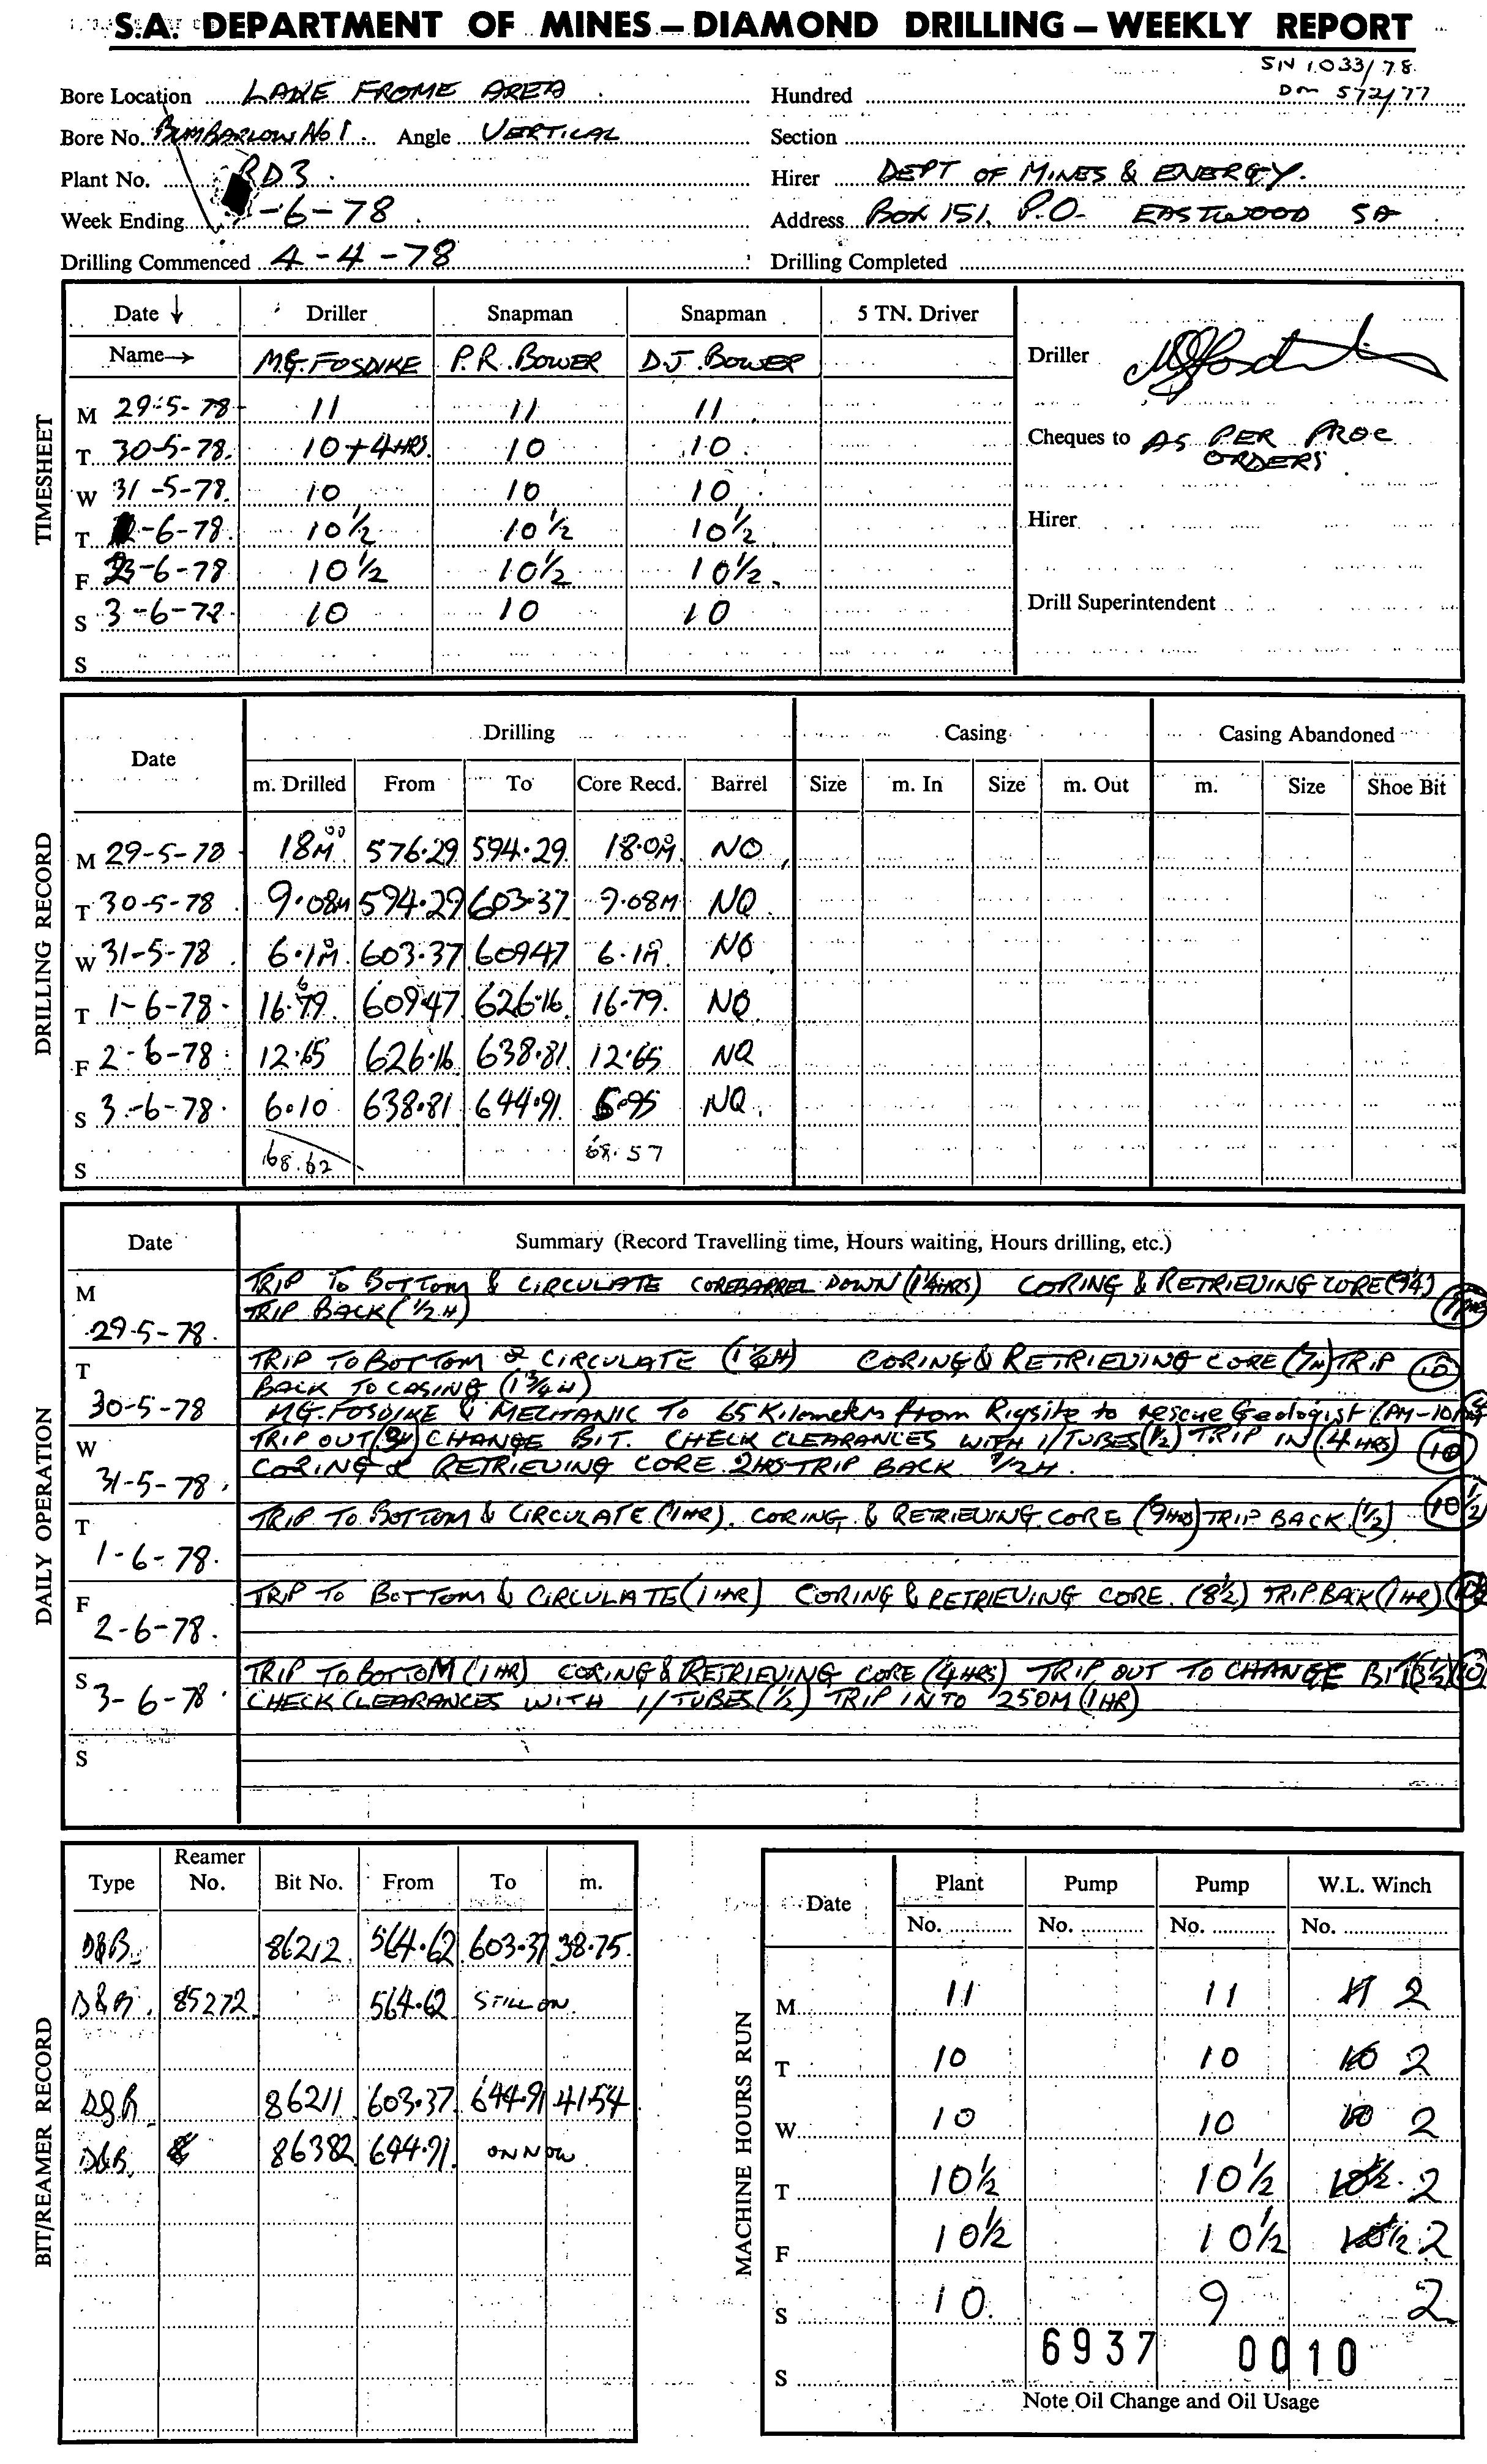 S.A. DEPARTMENT OF MINES – DIAMOND DRILLING – WEEKLY REPORT
SN 1033/78
DM 572/77
Bore Location LAKE FROME AREA Hundred
Bore No. BUMBARLOW No 1 Angle VERTICAL Section
Plant No. RD3 Hirer DEPT OF MINES & ENERGY.
Week Ending -6-78 Address BOX 151. P.O. EASTWOOD SA
Drilling Commenced 4-4-78 Drilling Completed
TIMESHEET
Date ↓ Driller Snapman Snapman 5 TN. Driver
Name→ M.G. FOSDIKE P.R. BOWER D.J. BOWER Driller
M 29-5-78 11 11 11
T 30-5-78. 10+4HRS. 10 10. Cheques to AS PER PROC
ORDERS.
W 31-5-78. 10 10 10
T -6-78. 10½ 10½ 10½ Hirer
F -6-78 10½ 10½ 10½
S 3-6-78. 10 10 10 Drill Superintendent
S
DRILLING RECORD
Date Drilling Casing Casing Abandoned
m. Drilled From To Core Recd. Barrel Size m. In Size m. Out m. Size Shoe Bit
M 29-5-78 18.00M 576.29 594.29 18.00M NQ
T 30-5-78 9.08M 594.29 603.37 9.08M NQ
W 31-5-78 6.10M 603.37 60947 6.10M NQ
T 1-6-78 16.79 60947 626.16 16.79. NQ
F 2-6-78 12.65 626.16 638.81 12.65 NQ
S 3-6-78 6.10 638.81 644.91 5.95 NQ.
S 68.62 68.57
DAILY OPERATION
Date Summary (Record Travelling time, Hours waiting, Hours drilling, etc.)
M TRIP TO BOTTOM & CIRCULATE COREBARREL DOWN (1¼HRS) CORING & RETRIEVING CORE (9¼)
29-5-78. TRIP BACK (½H)
T TRIP TO BOTTOM & CIRCULATE (1½H) CORING & RETRIEVING CORE (7H) TRIP 10
BACK TO CASING (1¾H)
30-5-78 MG. FOSDIKE & MECHANIC TO 65 Kilometers from Rigsite to rescue Geologist
W TRIP OUT (3H) CHANGE BIT. CHECK CLEARANCES WITH I/TUBES (½) TRIP IN (4HRS) 10
31-5-78. CORING & RETRIEVING CORE 2HRS TRIP BACK ½H.
T TRIP TO BOTTOM & CIRCULATE (1HR). CORING & RETRIEVING CORE (9HRS) TRIP BACK (½) 10½
1-6-78.
F TRIP TO BOTTOM & CIRCULATE (1HR) CORING & RETRIEVING CORE. (8½) TRIP BACK (1HR) 10½
2-6-78.
S TRIP TO BOTTOM (1HR) CORING & RETRIEVING CORE (4HRS) TRIP OUT TO CHANGE BIT (3½) 10
3-6-78. CHECK CLEARANCES WITH I/TUBES (½) TRIP IN TO 250M (1HR)
S
BIT/REAMER RECORD
Type Reamer No. Bit No. From To m.
D&B. 86212 564.62 603.37 38.75.
D&B. 85272 564.62 STILL ON.
D&B 86211 603.37 644.91 41.54
D&B. 86382 644.91. ON NOW.
MACHINE HOURS RUN
Date Plant Pump Pump W.L. Winch
No. No. No. No.
M 11 11 11 2
T 10 10 10 2
W 10 10 10 2
T 10½ 10½ 10½ 2
F 10½ 10½ 10½ 2
S 10. 9 2
6937 0010
S
Note Oil Change and Oil Usage